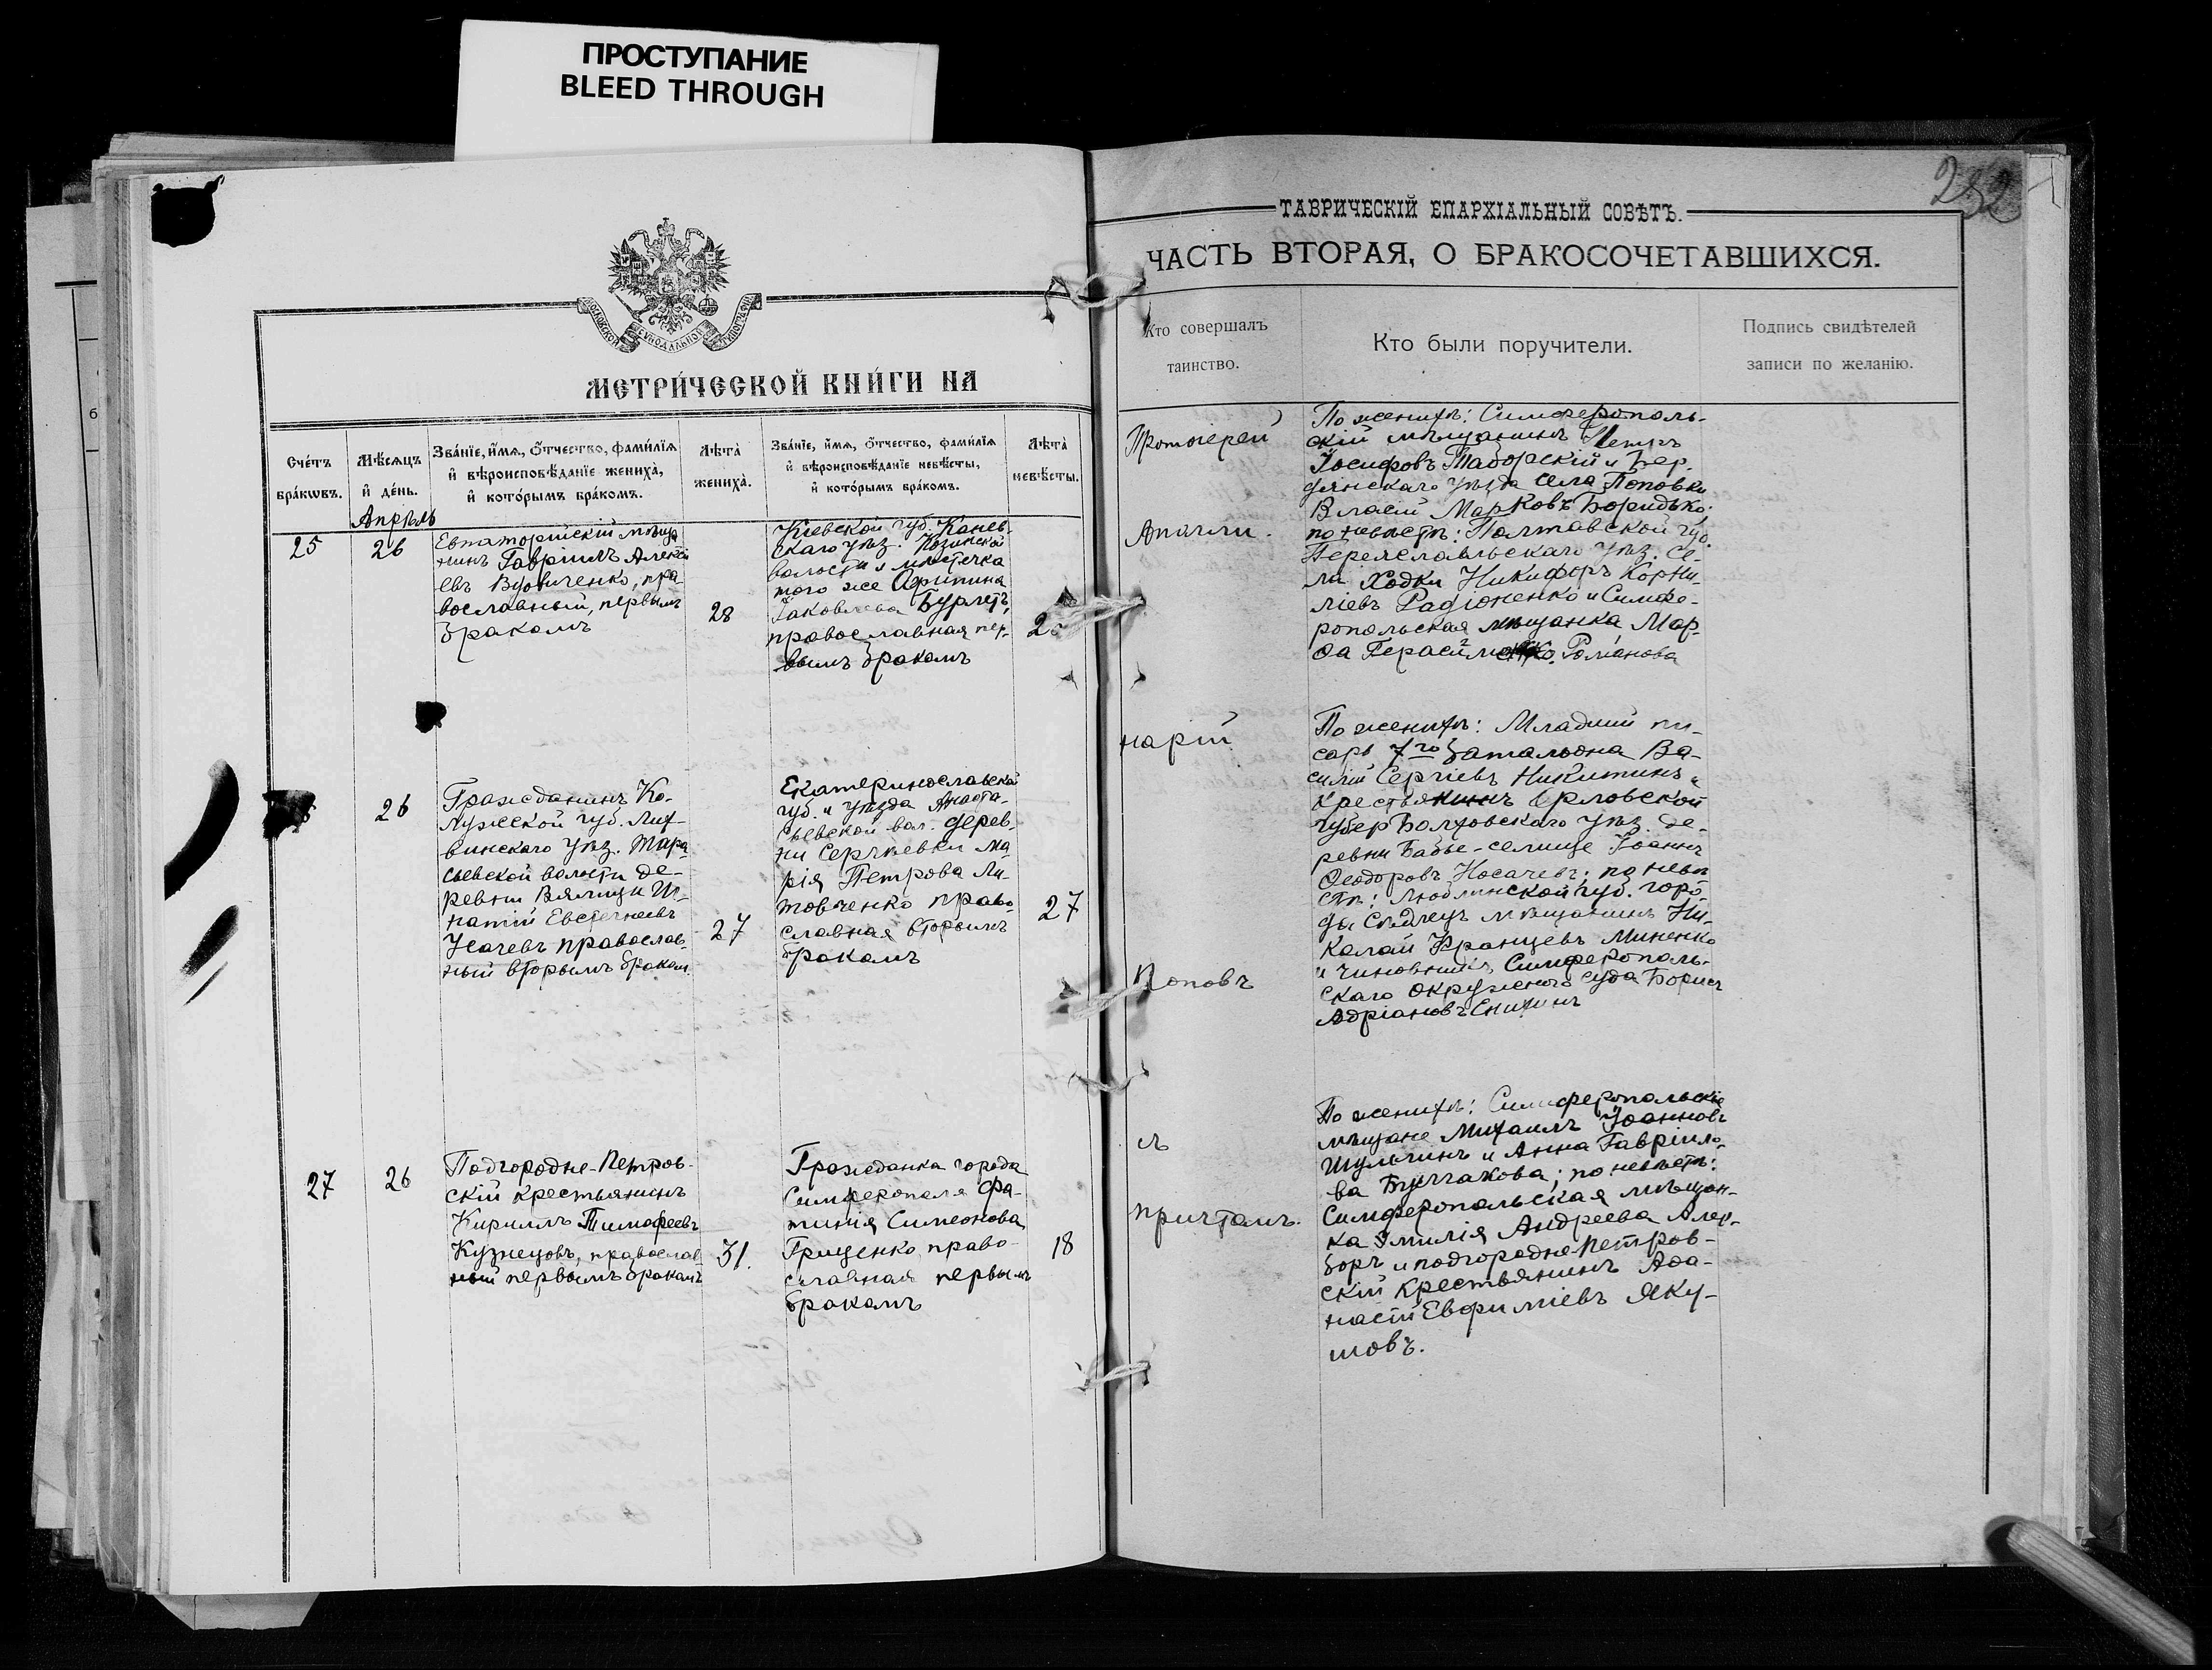 ПРОСТУПАНИЕ
BLEED THROUGH
252
МЕТРИ́ЧЕСКОЙ КНИ́ГИ НА
Сче́тъ бра́кѡвъ.
Мѣ́сяцъ и де́нь.
Зва́нїе, и́мя, ѻ҆́тчество, фами́лїя
и҆ вѣроисповѣ́данїе жениха̀,
и҆ кото́рымъ бра́комъ.
Лѣта̀ жениха̀.
Зва́нїе, и́мя, ѻ҆́тчество, фами́лїя
и҆ вѣроисповѣ́данїе невѣ́сты,
и҆ кото́рымъ бра́комъ.
Лѣта̀ невѣ́сты.
Апрѣль
25
26
Евпаторійскій мѣща
нинъ Гавріилъ Алексѣ
евъ Вдовиченко, пра
вославный, первымъ
бракомъ
28
Кіевской губ. Канев-
скаго уѣз. Козинской
волости и мѣстечка
того же Афрпина
Іаковлева Бурлетъ,
православная пер-
вымъ бракомъ
26
Гражданинъ Ка-
лужской губ. Лих-
винскаго уѣз. Тара
сьевской волости де-
ревни Вялицы Иг-
натій Евстигнеевъ
Усачевъ православ-
ный вторымъ браком
27
Екатеринославской
губ. и уѣзда Анаста-
сьевской вол. дерев-
ни Сергѣевки Ма
рія Петрова Ли-
товченко право-
славная вторымъ
бракомъ
27
27
26
Подгородне-Петров-
скій крестьянинъ
Кириллъ Тимофеевъ
Кузнецовъ, православ
ный первымъ бракомъ
31.
Гражданка города
Симферополя Фа-
тинія Симеонова
Грищенко право-
славная первымъ
бракомъ
18
ТАВРИЧЕСКІЙ ЕПАРХІАЛЬНЫЙ СОВѢТЪ.
ЧАСТЬ ВТОРАЯ, О БРАКОСОЧЕТАВШИХСЯ.
Кто совершалъ
таинство.
Кто были поручители.
Подпись свидѣтелей
записи по желанію.
Протоіерей
Аполли-
нарій
Поповъ
съ
причтомъ.
По женихѣ: Симферополь-
скій мѣщанинъ Петръ
Іосифовъ Таборскій и Бер-
дянскаго уѣзда села Поповки
Власій Марковъ Боридько;
по невѣстѣ: Полтавской губ.
Переяславльскаго уѣз. се-
ла Ходки Никифоръ Корни-
ліевъ Радіоненко и Симфе-
ропольская мѣщанка Мар-
ѳа Герасимо Романова
По женихѣ: Младшій пи-
сарь 7го баталіона Ва-
силій Сергіевъ Никитинъ и
крестьянинъ Орловской
губер Болховскаго уѣз. де-
ревни Бабье-селище Іоаннъ
Ѳеодоровъ Носачевъ; по невѣ
стѣ: Люблинской губ. горо-
да Сѣдлецъ мѣщанинъ Ни-
колай Францевъ Миненко
и чиновникъ Симферополь-
скаго окружного суда Борисъ
Адріановъ Енихинъ
По женихѣ: Симферопольскіе
мѣщане Михаилъ Іоанновъ
Шульгинъ и Анна Гавріило-
ва Булгакова; по невѣстѣ:
Симферопольская мѣщан-
ка Эмилія Андреева Алер-
боръ и подгородне-Петров-
скій крестьянинъ Аѳа-
насій Евфиміевъ Яку-
шовъ.